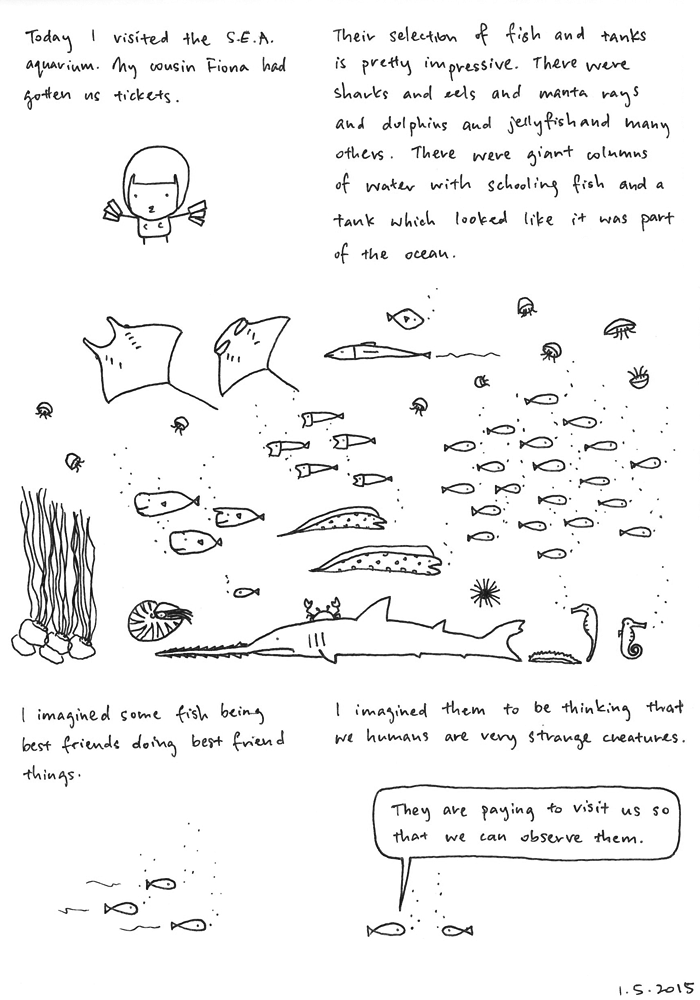 Today I visited the S.E.A.
aquarium. My cousin Fiona had
gotten us tickets.
Their selection of fish and tanks
is pretty impressive. There were
sharks and eels and manta rays
and dolphins and jellyfish and many
others. There were giant columns
of water with schooling fish and a
tank which looked like it was part
of the ocean.
I imagined some fish being
best friends doing best friend
things.
I imagined them to be thinking that
we humans are very strange creatures.
They are paying to visit us so
that we can observe them.
1.5.2015